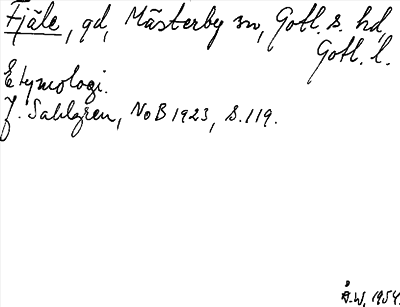 Fjäle, gd, Mästerby sn, Gotl. s. hd,
Gotl. l.
Etymologi.
J. Sahlgren, NoB 1923, s. 119.
Å.W. 1954.